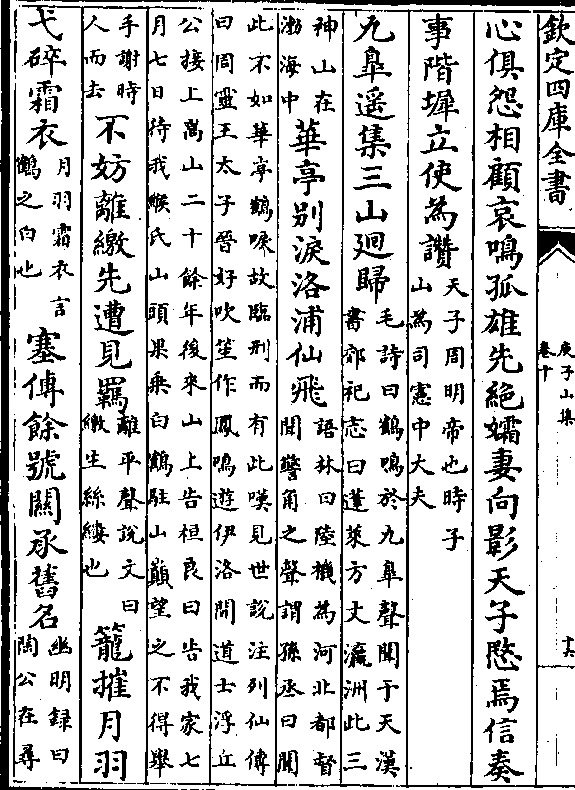 欽定四庫全書
庾子山集
卷十
十六
心俱怨相顧哀鳴孤雄先絶孀妻向影天子愍焉信奏
事階墀立使為讚
天子周明帝也時子
山為司憲中大夫
九臯遥集三山廻歸
毛詩曰鶴鳴於九臯聲聞于天漢
書郊祀志曰蓬萊方丈瀛洲此三
神山在
渤海中
華亭别淚洛浦仙飛
語林曰陸機為河北都督
聞警角之聲謂孫丞曰聞
此不如華亭鶴唳故臨刑而有此嘆見世說注列仙傳
曰周靈王太子晉好吹笙作鳳鳴遊伊洛間道士浮丘
公接上嵩山二十餘年後來山上告桓良曰告我家七
月七日待我緱氏山頭果乗白鶴駐山巔望之不得舉
手謝時
人而去
不妨離繳先遭見羈
離平聲說文曰
繳生絲縷也
籠摧月羽
弋碎霜衣
月羽霜衣言
鶴之白也
塞傅餘號關承舊名
幽明録曰
陶公在尋